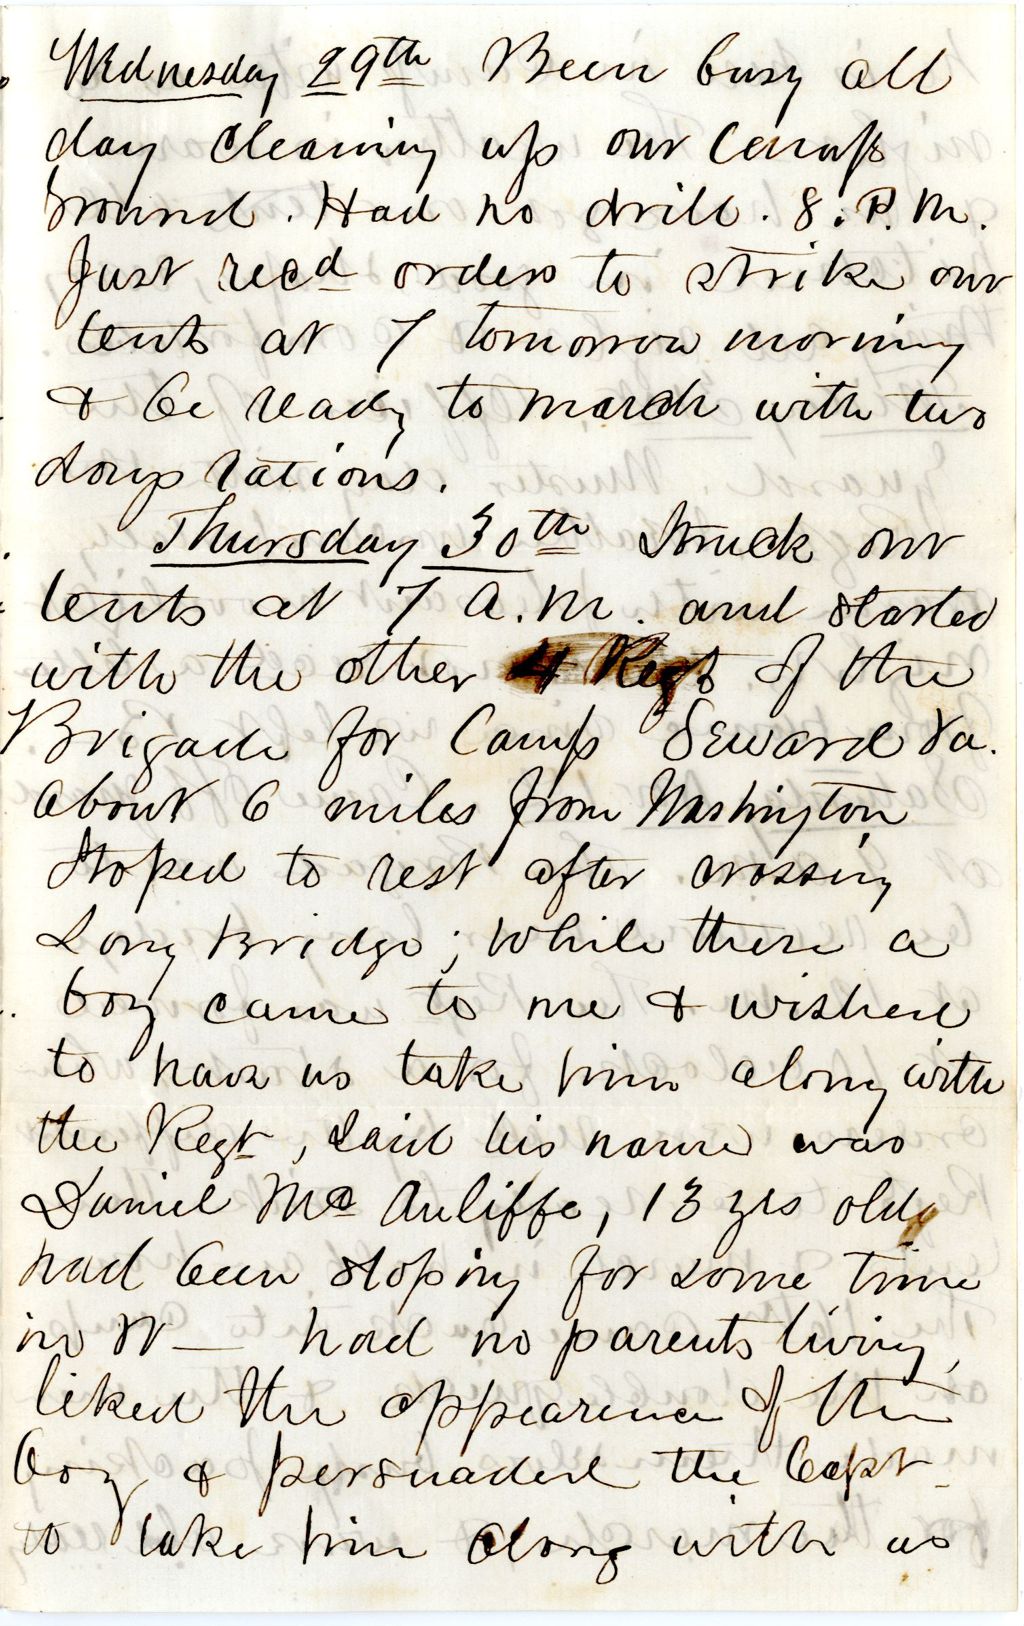 Wednesday 29th Been busy all
day cleaning up our Camp
Ground. Had no drill. 8. P.M.
Just recd orders to strike our
tents at 7 tomorrow morning
& be ready to march with two
days rations.
Thursday 30th Struck our
tents at 7 A.M. and started
with the other 4 Regts of the
Brigade for Camp Seward Va.
About 6 miles from Washington
Stoped to rest after crossing
Long Bridge; while there a
boy came to me & wished
to have us take him along with
the Regt, said his name was
Daniel Mc Auliffe, 13 yrs old,
had been stoping for some time
in W— had no parents living,
liked the appearence of the
boy & persuaded the Capt
to take him along with us